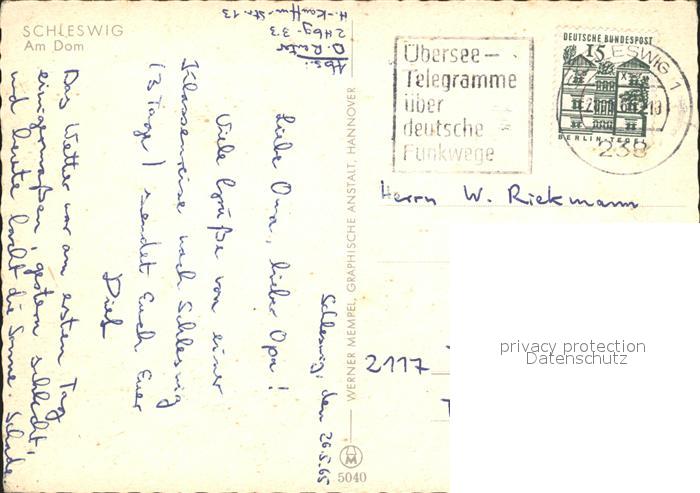 SCHLESWIG
Am Dom
Abs:
D. Reuter
2 Hbg-33
H.-Kauffm-Str. 13
Schleswig, den 26.5.65
Liebe Oma, lieber Opa!
Viele Grüße von einer
Klassenreise nach Schleswig
(3 Tage) sendet Euch Euer
Das Wetter war am ersten Tag
einigermaßen, gestern schlecht,
und heute lacht die Sonne. Schade
WERNER MEMPEL, GRAPHISCHE ANSTALT, HANNOVER
5040
Übersee-
Telegramme
über
deutsche
Funkwege
DEUTSCHE BUNDESPOST
15
BERLIN TEGEL
ESWIG 1
238
Herrn W. Riekmann
2117
privacy protection
Datenschutz